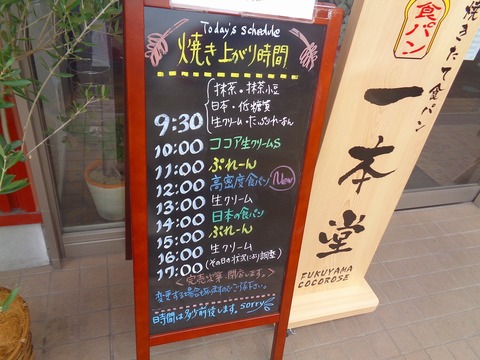 Today's schedule
焼き上がり時間
抹茶・抹茶小豆
日本・低糖質
9:30 生クリーム・たっぷりれーずん
10:00 ココア生クリームS
11:00 ぷれーん
12:00 高密度食パン New
13:00 生クリーム
14:00 日本の食パン
15:00 ぷれーん
16:00 生クリーム
17:00 (その日の状況により調整)
<完売次第、閉店します。>
変更する場合もありますのでご了承下さい。
時間は多少前後します。sorry
食パン
焼きたて食パン
一本堂
FUKUYAMA
COCOROSE